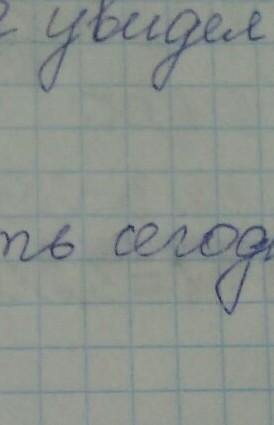 увидел
ть сегод